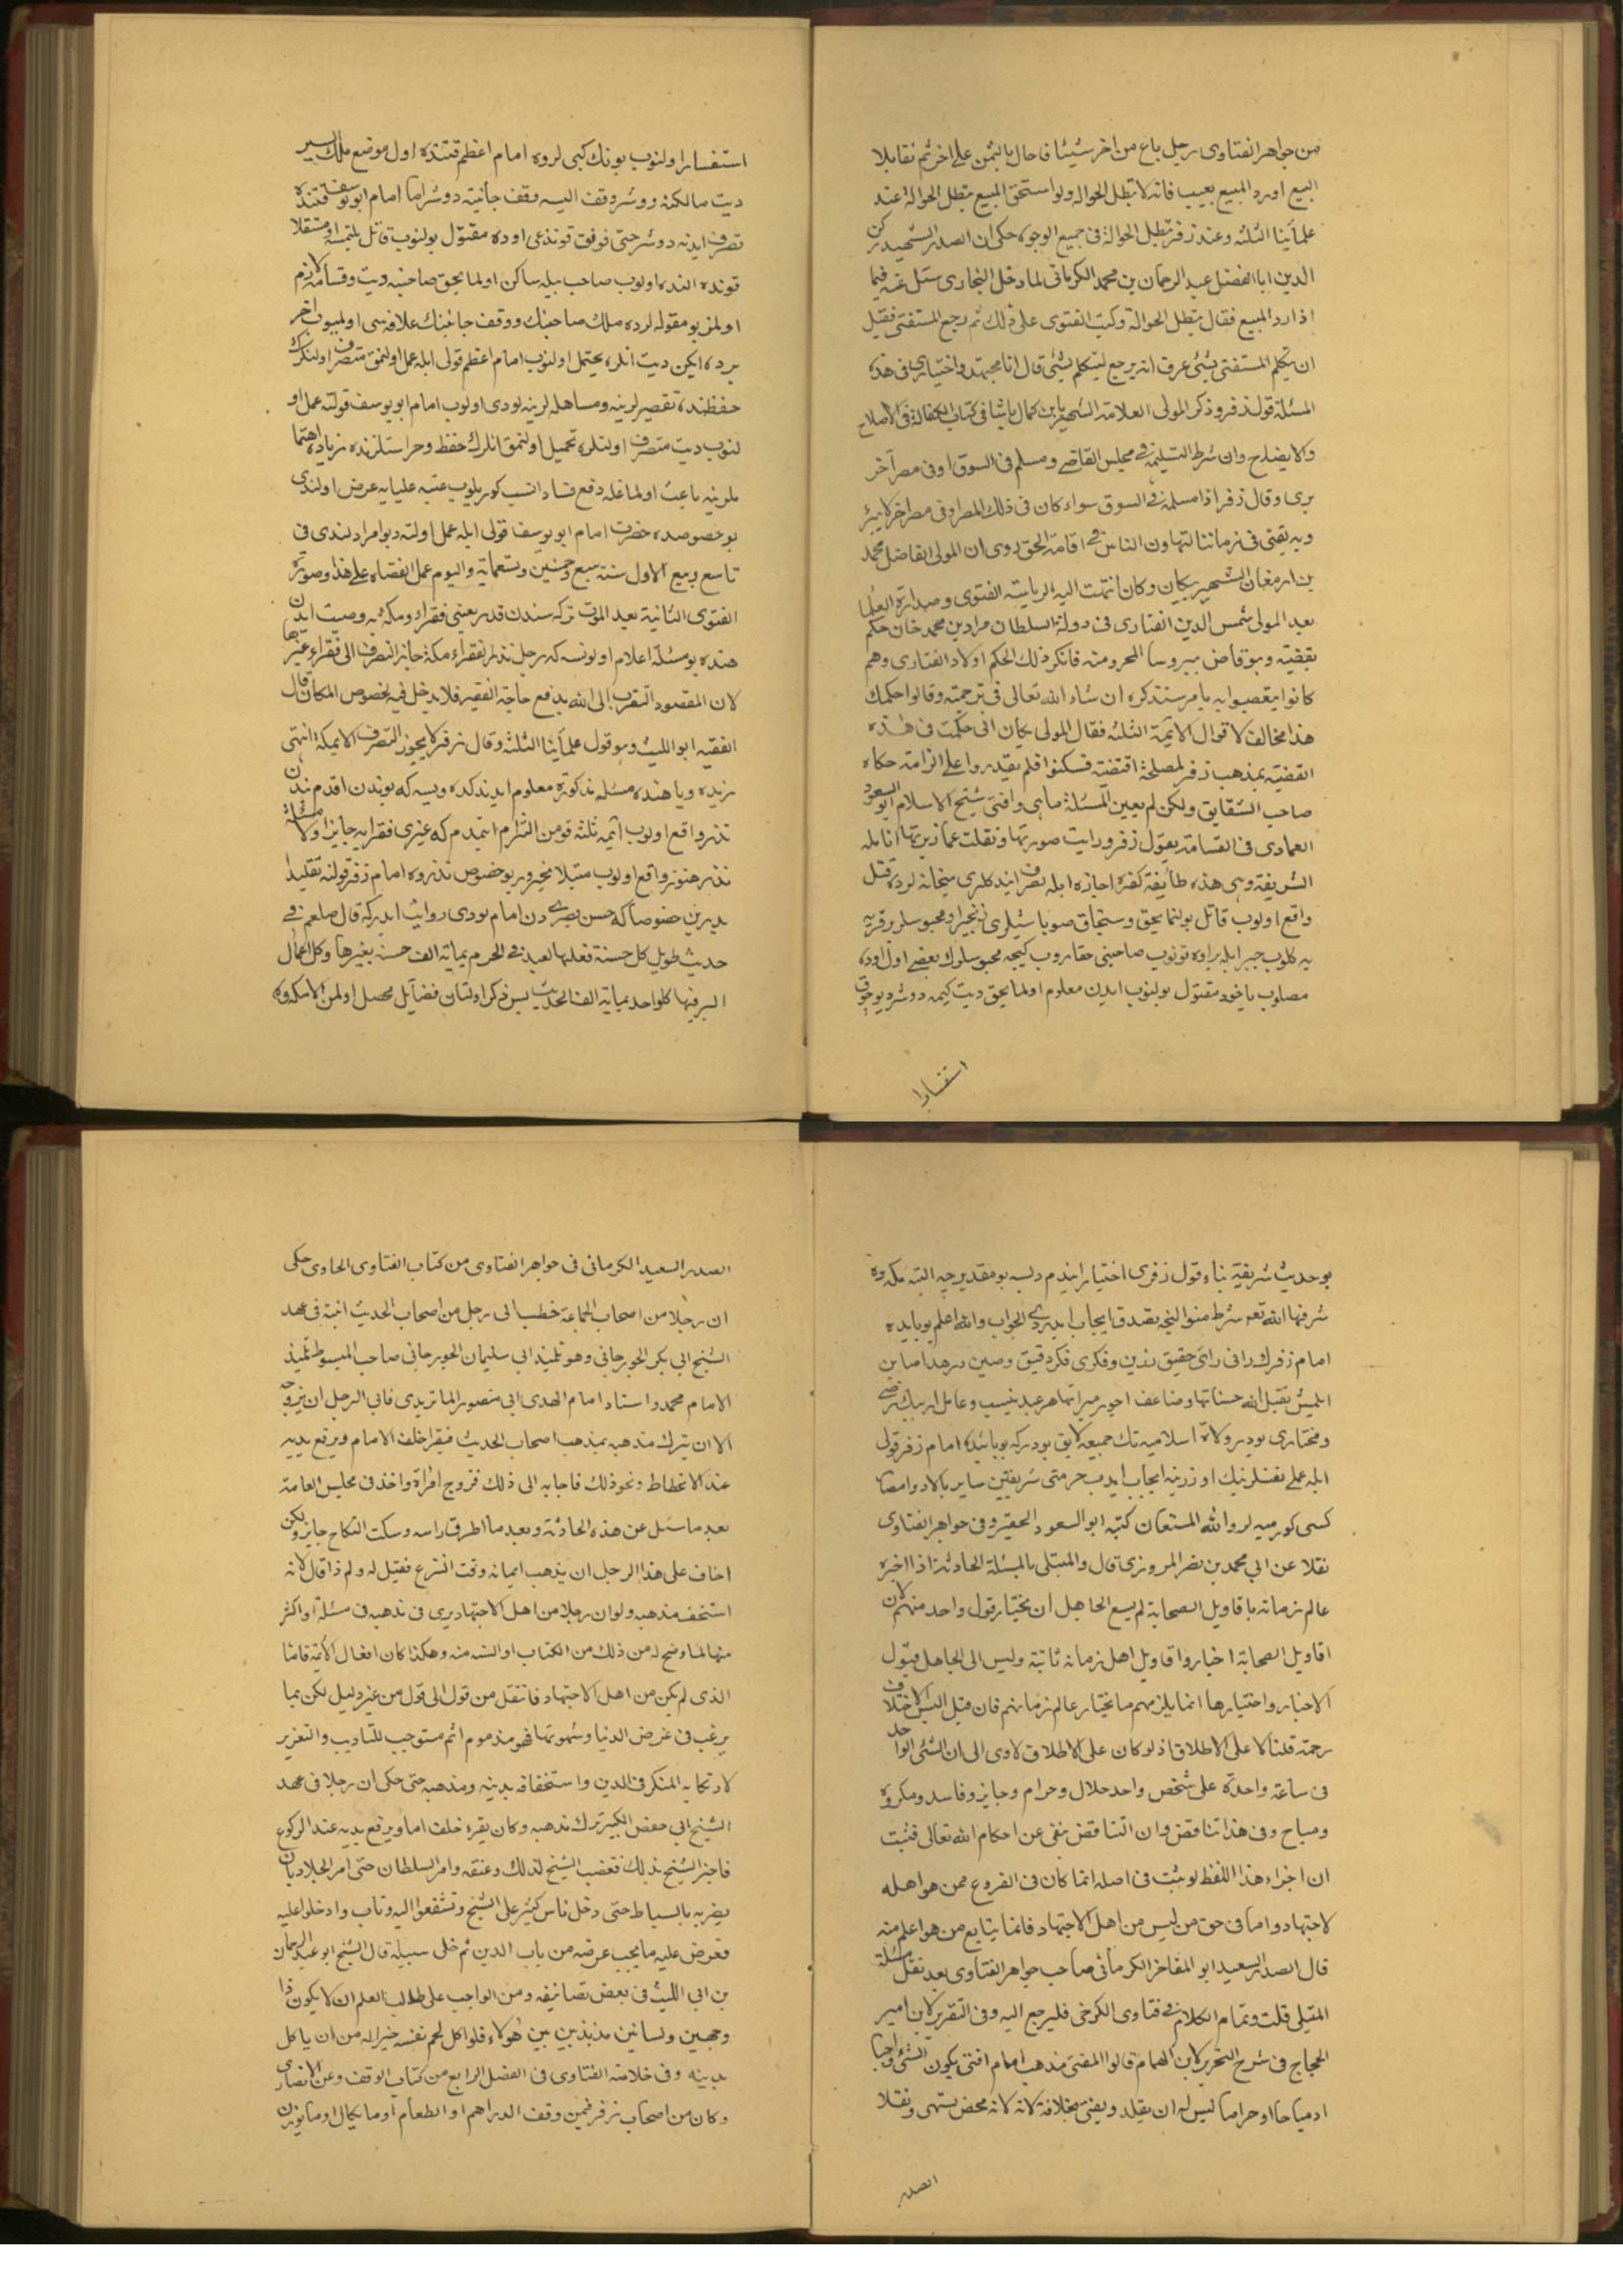 من جواهر الفتاوى رجل باع من اخر شيئا فاحال بالثمن على اخر ثم تقايلا
البيع اورد المبيع بعيب فانه لا تبطل الحوالة ولو استحق المبيع تبطل الحوالة عند
علمائنا الثلثه وعند زفر تبطل الحوالة فى جميع الوجوه حكى ان الصدر الشهيد ركن
الدين ابا الفضل عبد الرحمان بن محمد الكرمانى لما دخل البخارى سئل عنه فيما
اذا رد المبيع فقال تبطل الحوالة وكتب الفتوى على ذلك ثم رجع المستفتى فقيل
ان يتكلم المستفتى بشئ عرف انه يرجع ليتكلم بشئ قال انا مجتهد واختيارى فى هذه
المسئلة قول زفر وذكر المولى العلامة الشهير بابن كمال باشا فى كتاب الكفالة فى الاصلاح
والايضاح وان شرط التسليم فى مجلس القاضى وسلم فى السوق او فى مصر آخر
برى وقال زفر اذا سلمه فى السوق سواء كان فى ذلك المصر او فى مصر اخر لا يبرئ
وبه يفتى فى زماننا لتهاون الناس فى اقامة الحق روى ان المولى الفاضل محمد
بن ارمغان الشهير بيكان وكان انتهت اليه الرياسة الفتوى وصدارة العلما
بعد المولى شمس الدين الفنارى فى دولة السلطان مراد بن محمد خان حكم
بقضية وهو قاض ببروسا المحروسة فانكر ذلك الحكم اولاد الفنارى وهم
كانوا يتعصبوا به بامر سنذكره ان شاء الله تعالى فى ترجمته وقالوا حكمك
هذا مخالف لاقوال الائمة الثلثه فقال المولى يكان انى حكمت فى هذه
القضية بمذهب زفر لمصلحة اقتضته فسكتوا فلم يقدروا على الزامه حكاه
صاحب الشقايق ولكن لم يعين المسئلة ماهى وافتى شيخ الاسلام ابو السعود
العمادى فى القسامة بقول زفر ورايت صورتها ونقلت عما زبرتها انامله
الشريفة وهى هذه طائفة كفره اجازه ايله تصرف ايندكلرى ميخانه لرده قتل
واقع اولوب قاتل بولنمايحق وسنجاق صوباشيلرى زنجير او محبوسلر برقريه
يه كلوب جبر ايله براوه قونوب صاحبنى حقاروب كيجه محبوسلرك بعضى اول اوده
مصلوب ياخود مقتول بولنوب ايدن معلوم اولمايحق ديت كيمه دوشر ديو
استفسارا
استفسار اولنوب بونك كبى لرده امام اعظم قتنده اول موضع ملك ايسه
ديت مالكنه دوشر وقف ايسه وقف جانبنه دوشر اما امام ابو يوسف قتنده
تصرف ايدنه دوشر حتى قوغوق قوندغى اوده مقتول بولنوب قاتل بلنمسه او مستقلا
قونده النده اولوب صاحب بيله ساكن اولمايحق صاحبنه ديت وقسامه لازم
اولمز بو مقوله لرده ملك صاحبنك ووقف جانبنك علاقه سى اولميوب اخر
برده ايكن ديت انلره يحتمل اولنوب امام اعظم قولى ايله عمل اولنمق متصرف اولنلرك
حفظنده تقصيرلرينه ومساهله لرينه بودى اولوب امام ابو يوسف قولنه عمل او
لنوب ديت متصرف اولنلره تحميل اولنمق انلرك حفظ وحراستلرنده زياده اهتما
ملرينه باعث اولماغله دفع فساد انسب كوريلوب عتبه عليايه عرض اولندى
بو خصوصده حضرت امام ابو يوسف قولى ايله عمل اولنه ديو امر اولندى فى
تاسع ربيع الاول سنة سبع وخمسين وتسعمايه واليوم عمل القضاة على هذا وصورة
الفتوى الثانية بعد الموت تركه سندن قدر يعنى فقراء ومكه يه وصيت ايدن
هنده بو مسئله اعلام اولونسه كه رجل نذر لفقراء مكة جاز الصرف الى فقراء غيرها
لان المقصود التقرب الى الله بدفع حاجة الفقير فلا يدخل فيه لخصوص المكان قال
الفقيه ابو الليث وهو قول علمائنا الثلثه وقال زفر لا يجوز التصرف الا بمكة انتهى
زيده ويا هنده مسئله مذكوره معلوم ايدندكده ويسه كه بوندن اقدم بندن
نذر واقع اولوب ائمه ثلثه قومن التزام ايتمدم كه غيرى فقرايه جايز اولا مسئلة
نذر هنوز واقع اولوب مبتلا مخيردر بو خصوص نذرده امام زفر قولنه تقليد
ايدرين خصوصا كه حسن بصرى دن امام نووى روايت ايدركه قال صلعم فى
حديث طويل كل حسنة فعلها العبد فى الحرم بمائة الف حسنة بغيرها وكل اعمال
البر فيها كل واحد بمائة الف الحديث بس ذكر اولنان فضايل محصل اولمز الا مكه ده
بو حديث شريفه بناء قول زفرى اختيار ايندم دلسه بو مقدرجه البته مكه ده
شرفها الله تعم شرط منوالنجه تصدق ايجاب ايدرمى الجواب والله اعلم بو بابده
امام زفرك رائى رائ حقيق رزين وفكرى فكر دقيق وصين در هدا صاين
ايلمش تقبل الله حسناتها وضاعف اجور مبراتها هر عبد منيب وعامل اريبك مرضى
ومختارى بودر ولاة اسلاميه نك جميعه لايق بودركه بو بابده امام زفر قولى
ايله عملى نفسلرينك اوزرينه ايجاب ايدب حرمتى شريفين ساير بلاد وامصا
كسى كورميه لر والله المستعان كتبه ابو السعود الحقير وفى جواهر الفتاوى
نقلا عن ابى محمد بن نضر المروزى قال والمبتلى بالمسئلة الحادثة اذا اخبره
عالم زمانه باقاويل الصحابة لم يسع الجاهل ان يختار قول واحد منهم لان
اقاويل الصحابة اخبار واقاويل اهل زمانه ثابتة وليس الى الجاهل قبول
الاخبار واختيارها انما يلزمهم ما يختار عالم زمانهم فان قيل اليس الاختلاف
رحمة قلنا لا على الاطلاق اذ لو كان على الاطلاق لادى الى ان الشئ الواحد
فى ساعة واحدة على شخص واحد حلال وحرام وجايز وفاسد ومكروه
ومباح وفى هذا تناقض وان التناقض ينفى عن احكام الله تعالى فثبت
ان اجزاء هذا اللفظ لو يثبت فى اصله انما كان فى الفروع ممن هو اهله
لاجتهاد واما فى حق من ليس من اهل الاجتهاد فانما يتابع من هو اعلم منه
قال الصدر السعيد ابو المفاخر الكرمانى صاحب جواهر الفتاوى بعد نقل مسئلة
المبتلى قلت وتمام الكلام فى فتاوى الكرخى فليرجع اليه وفى التقرير لابن امير
الحجاج فى شرح التحرير لابن الهمام قالوا المفتى مذهب امام افتى بكون الشئ واجبا
او مباحا او حراما ليس له ان يقلد ويفتى بخلافه لانه لانه محض تشهى ونقلا
الصدر
الصدر السعيد الكرمانى فى جواهر الفتاوى من كتاب الفتاوى الحاوى حكى
ان رجلا من اصحاب الجماعة خطب الى رجل من اصحاب الحديث ابنته فى عهد
الشيخ ابى بكر الجورجانى وهو تلميذ ابى سليمان الجورجانى صاحب المبسوط تلميذ
الامام محمد واستاد امام الهدى ابى منصور الماتريدى فابى الرجل ان يزوجه
الا ان يترك مذهبه بمذهب اصحاب الحديث فيقرا خلف الامام ويرفع يديه
عند الانحطاط ونحو ذلك فاجابه الى ذلك فزوج افراة واخذ فى مجلس العامة
بعد ما سئل عن هذه الحادثة وبعد ما اطرق راسه وسكت النكاح جايز ولكن
اخاف على هذا الرجل ان يذهب ايمانه وقت النزع فقيل له ولم ذا قال لانه
استخف مذهبه ولو ان رجلا من اهل الاجتهاد يرى فى مذهبه فى مسئلة او اكثر
منها لما وضح له من ذلك من الكتاب او السنه منه وهكذا كان افعال الائمة فاما
الذى لم يكن من اهل الاجتهاد فانتقل من قول الى قول من غير دليل لكن بما
يرغب فى غرض الدنيا وشهوتها فهو مذموم اثم مستوجب للتاديب والتعزير
لارتكابه المنكر فى الدين واستخفافه بدينه ومذهبه حتى حكى ان رجلا فى عهد
الشيخ ابى حفص الكبير ترك مذهبه وكان يقرء خلف امام ويرفع يديه عند الركوع
فاخبر الشيخ بذلك فغضب الشيخ لذلك وعنفه وامر السلطان حتى امر الجلاد بان
يضربه بالسياط حتى دخل ناس كثير على الشيخ وتشفعوا اليه وتاب وادخلوا عليه
فعرض عليه ما يجب عرضه من باب الدين ثم خلى سبيله قال الشيخ ابو عبد الرحمان
بن ابى الليث فى بعض تصانيفه ومن الواجب على طالب العلم ان لا يكون ذا
وجهين ولسانين مذبذبين بين هولاء فلو اكل لحم نفسه خير اله من ان ياكل
بدينه وفى خلاصة الفتاوى فى الفصل الرابع من كتاب الوقف وعن الانصارى
وكان من اصحاب زفر فيمن وقف الدراهم او الطعام او ما يكال او ما يوزن